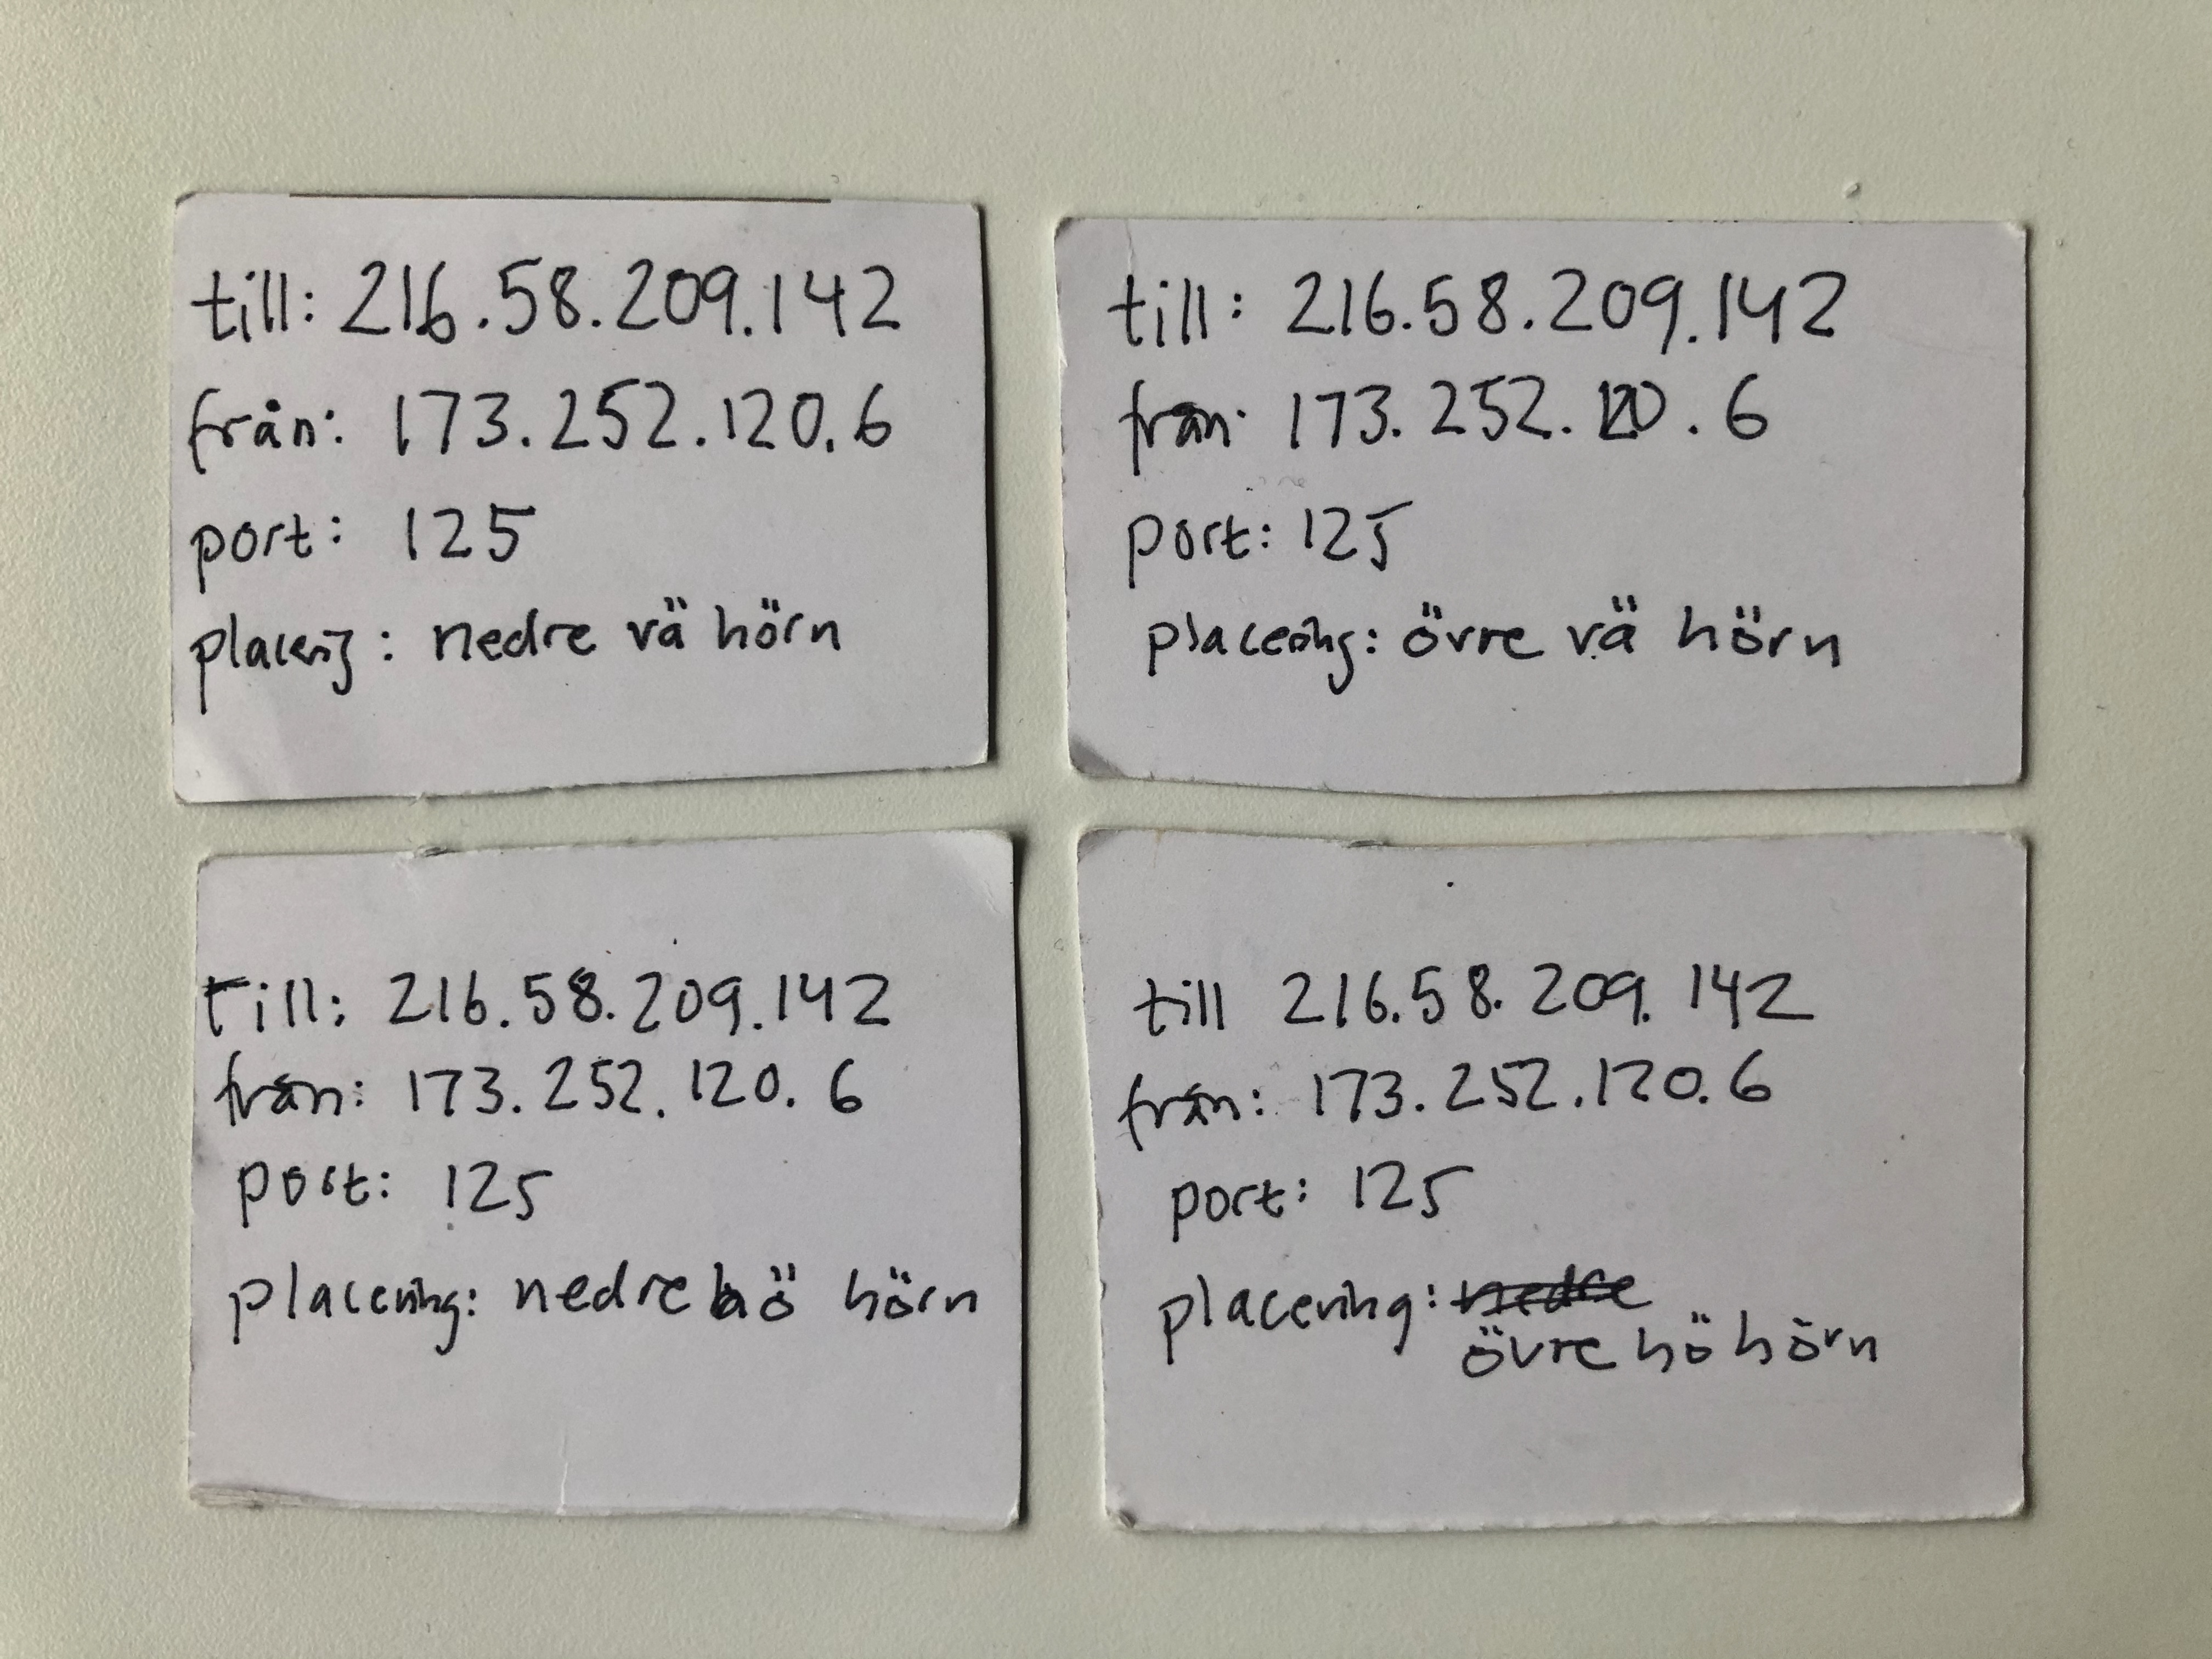 till: 216.58.209.142
från: 173.252.120.6
port: 125
placering: nedre vä hörn
till: 216.58.209.142
från: 173.252.120.6
port: 125
placering: övre vä hörn
till: 216.58.209.142
från: 173.252.120.6
port: 125
placering: nedre hö hörn
till 216.58.209.142
från: 173.252.120.6
port: 125
placering: nedre
övre hö hörn